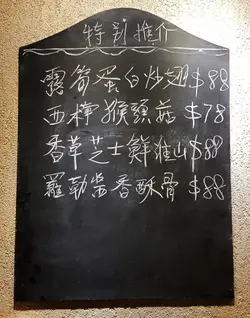 特别推介
露筍蛋白炒翅$88
西檸猴頭菇$78
香草芝士鮮淮山$88
羅勒香酥骨$88